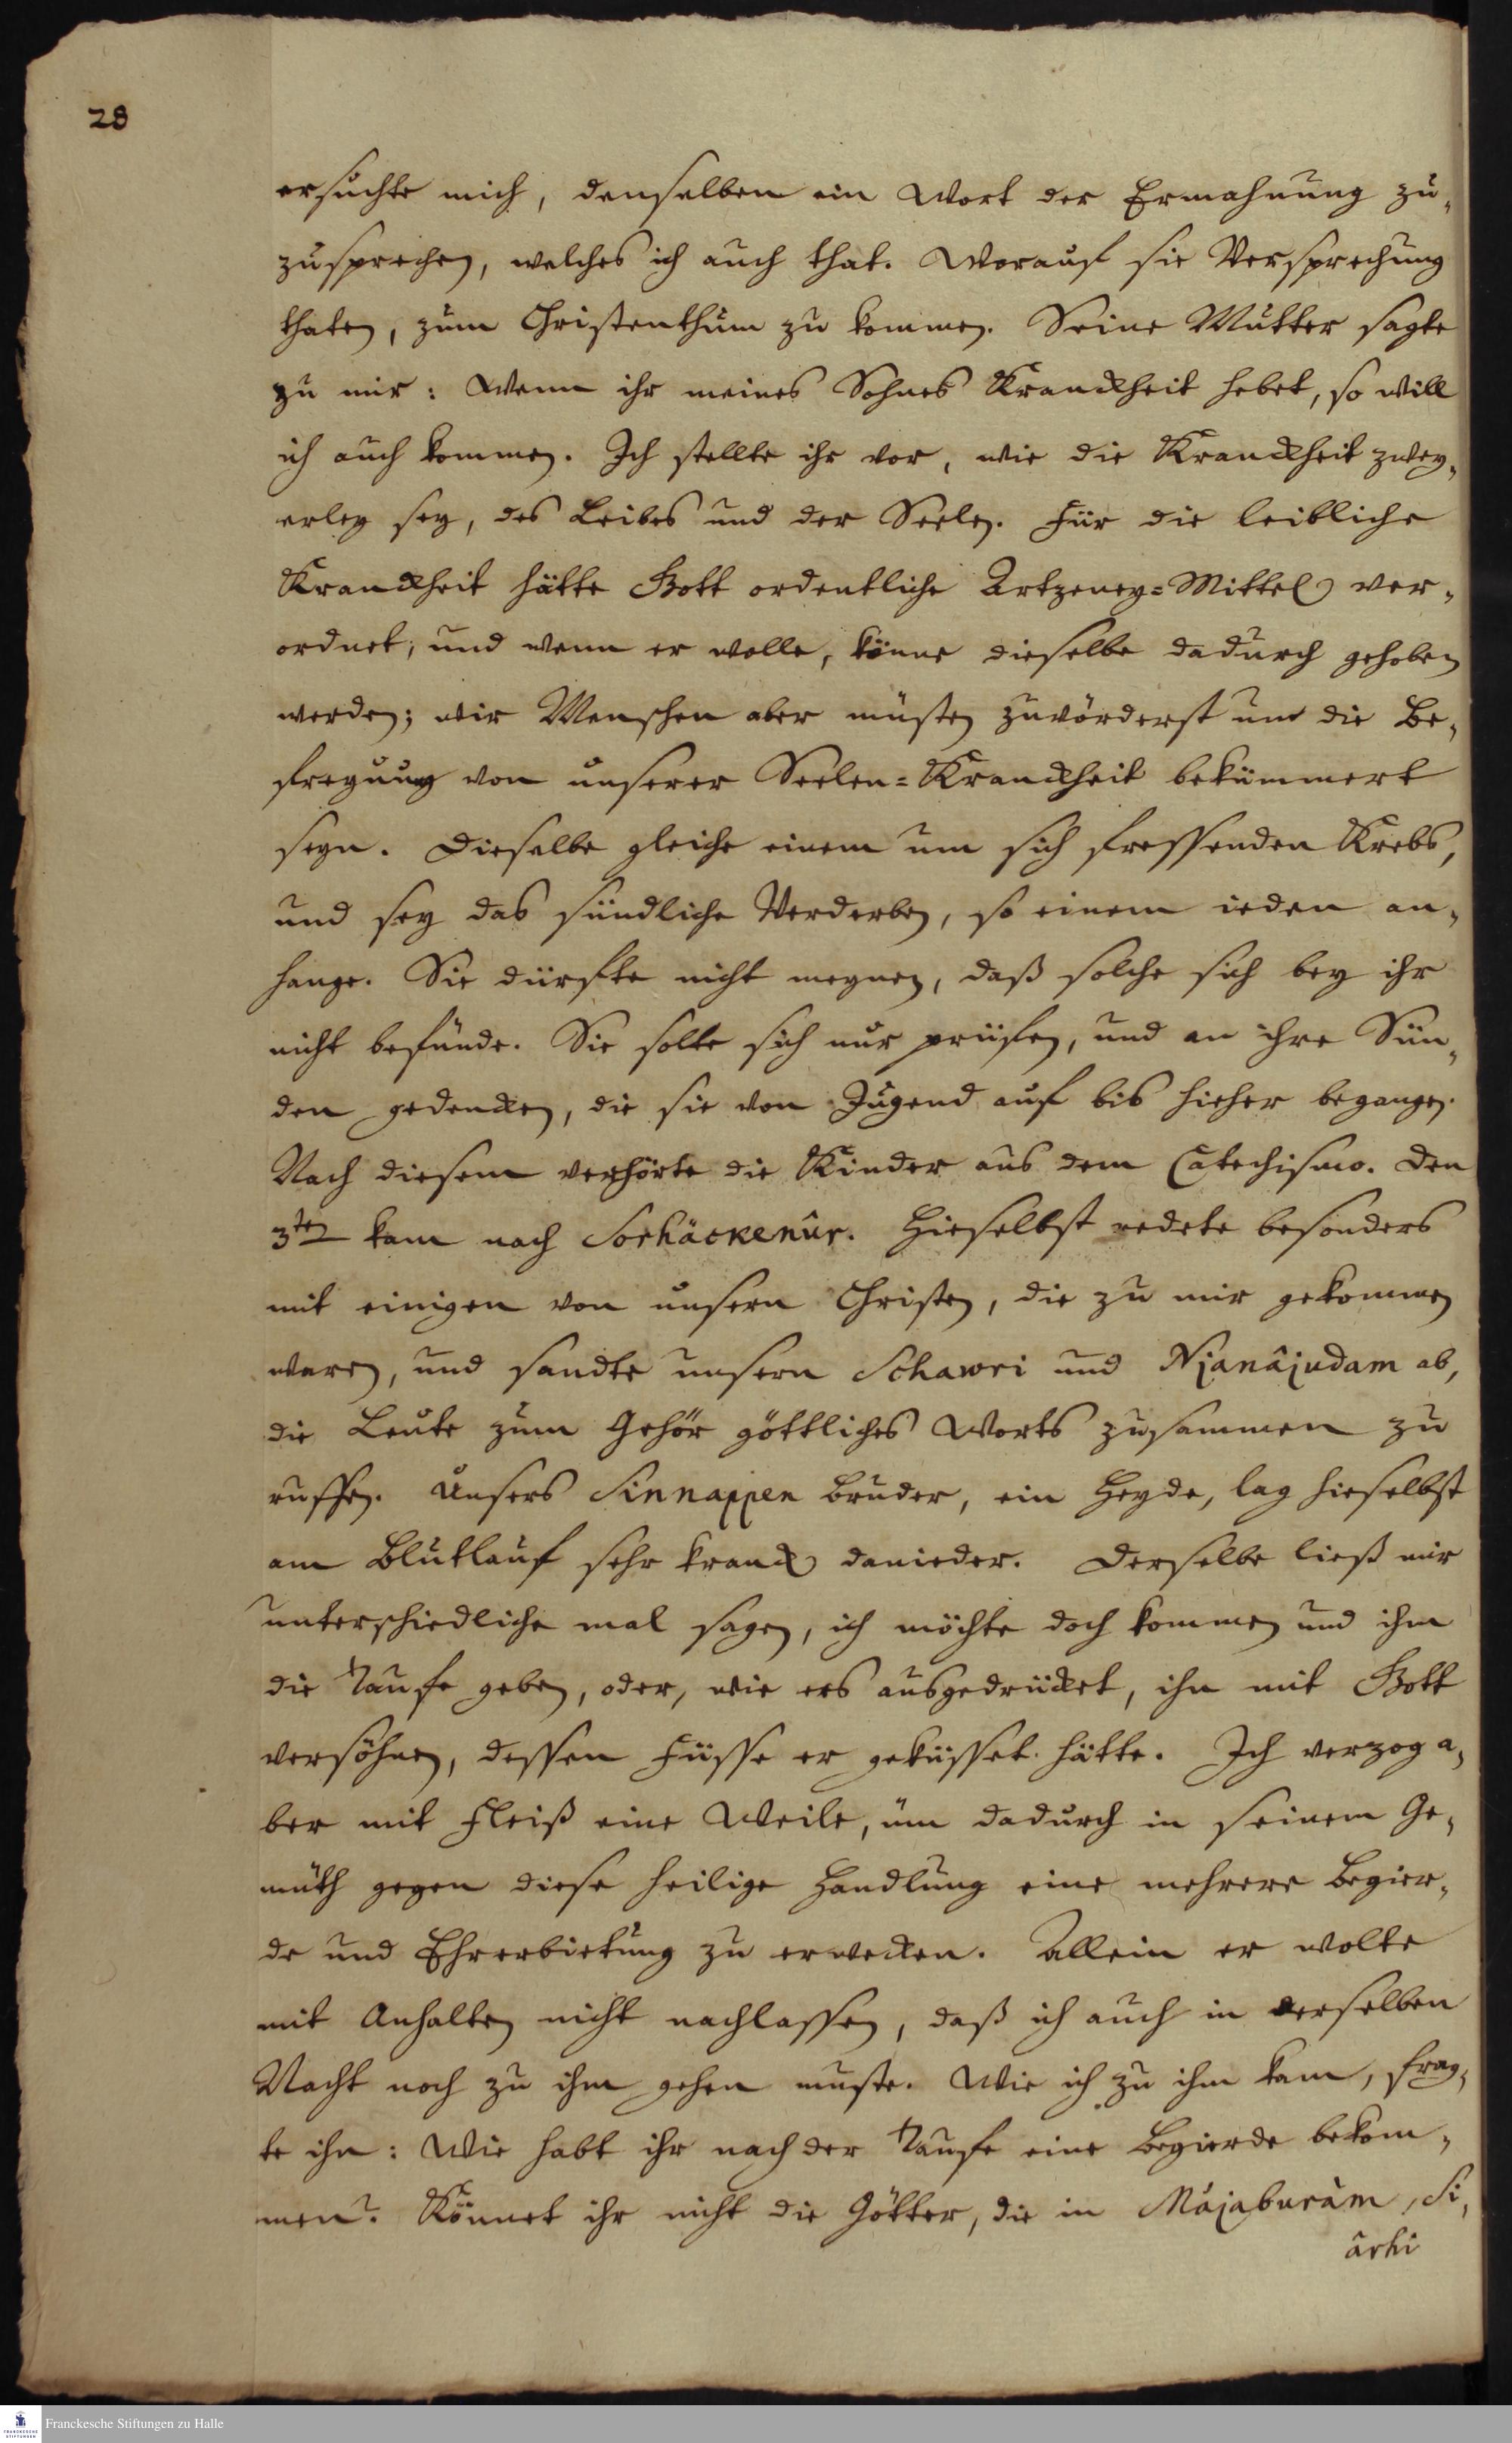 28
ersuchte mich, denselben ein Wort der Ermahnung zu-
zusprechen, welches ich auch that. Worauf sie Versprechung
thaten, zum Christenthum zu kommen. Seine Mutter sagte
zu mir: Wenn ihr meines Sohnes Kranckheit hebet, so will
ich auch kommen. Ich stellte ihr vor, wie die Kranckheit zwey-
erley sey, des Leibes und der Seelen. Für die leibliche
Kranckheit hätte Gott ordentliche Artzeney-Mittel ver-
ordnet, und wenn er wolle, könne dieselbe dadurch gehoben
werden; wir Menschen aber müsten zuvörderst um die Be-
freyung von unserer Seelen-Kranckheit bekümmert
seyn. Dieselbe gleiche einem um sich fressenden Krebs,
und sey das sündliche Verderben, so einem ieden an-
hange. Sie dürfte nicht meynen, daß solche sich bey ihr
nicht befünde. Sie solte sich nur prüfen, und an ihre Sün-
den gedencken, die sie von Jugend auf bis hieher begangen.
Nach diesem verhörte die Kinder aus dem Catechismo. Den
3ten kam nach Sorhäckenûr. Hieselbst redete besonders
mit einigen von unsern Christen, die zu mir gekommen
waren, und sandte unsern Schawri und Njanâjudam ab,
die Leute zum Gehör göttliches Worts zusammen zu
ruffen. Unsers Sinnappen Bruder, ein Heyde, lag hieselbst
am Blutlauf sehr kranck danieder. Derselbe ließ mir
unterschiedliche mal sagen, ich möchte doch kommen und ihm
die Taufe geben, oder, wie ers ausgedrücket, ihn mit Gott
versöhnen, dessen Füsse er geküsset hätte. Ich verzog a-
ber mit Fleiß eine Weile, um dadurch in seinem Ge-
müth gegen diese heilige Handlung eine mehrere Begier-
de und Ehrerbietung zu erwecken. Allein er wolte
mit Anhalten nicht nachlassen, daß ich auch in derselben
Nacht noch zu ihm gehen muste. Wie ich zu ihm kam, frag-
te ihn: Wie habt ihr nach der Taufe eine Begierde bekom-
men? Könnet ihr nicht die Götter, die in Mâjaburàm, Si-
ârhi
Franckesche Stiftungen zu Halle